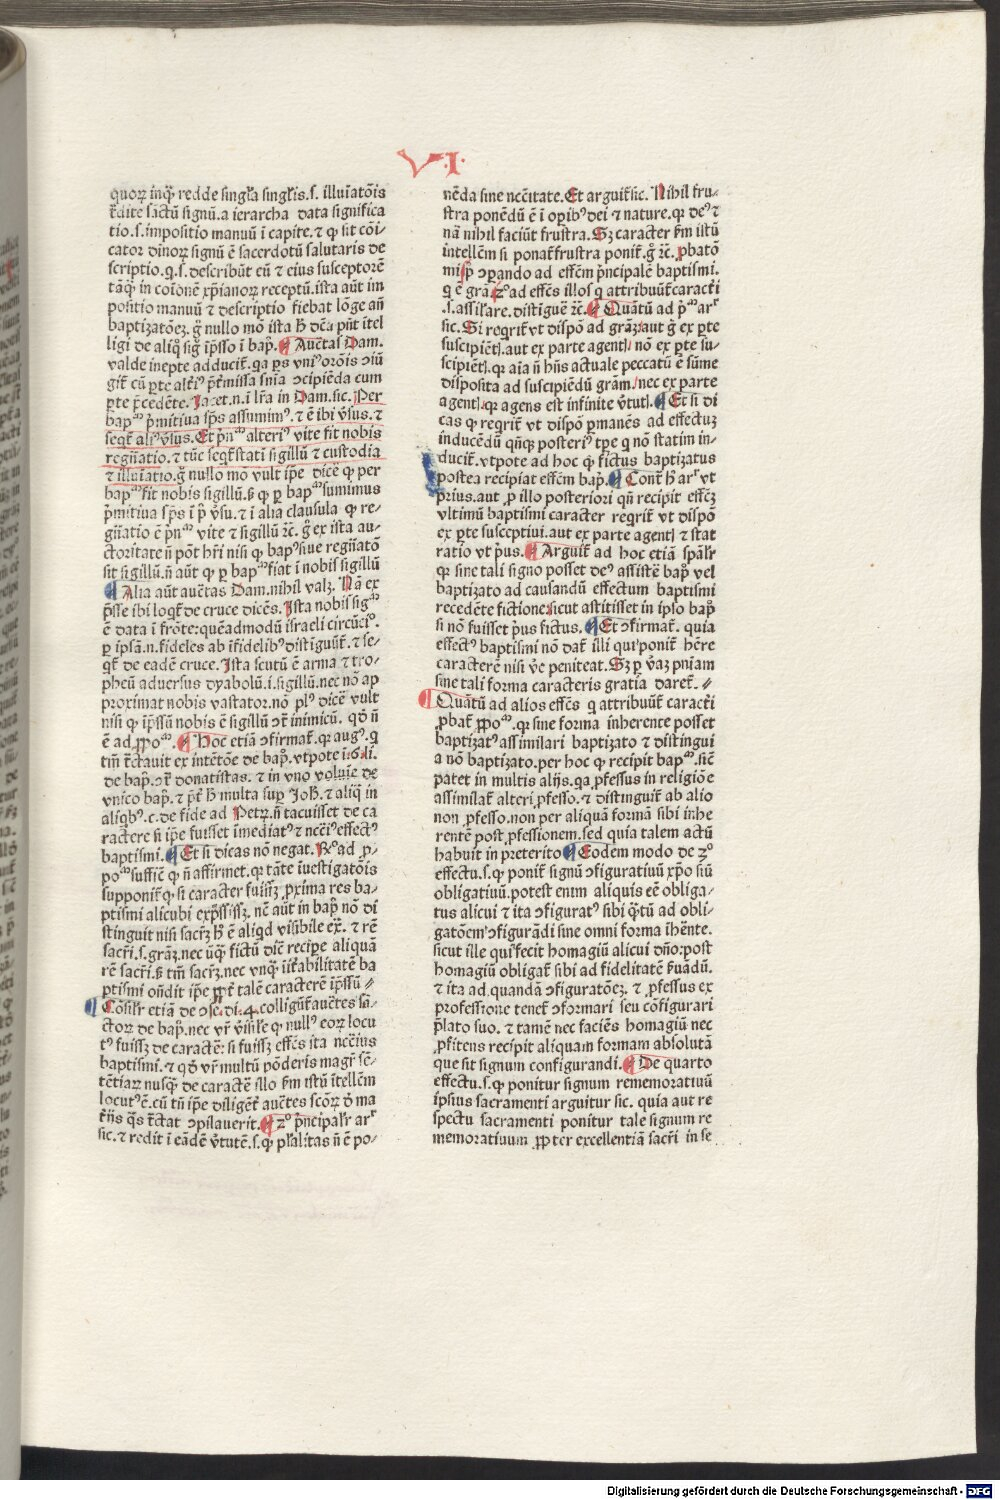 V·I·
quoꝝ inq̄ꝫ redde singl'a singl'is.s. illuīatōis
t̄dite sāctū signū.a ierarcha data significa
tio.s.impositio manuū i capite.⁊ ꝙ sit cōi-
catoꝝ dinoꝝ signū ē sacerdotū salutaris de
scriptio.q.s.describūt eū ⁊ eius susceptorē
tāꝙ̄ in coīonē xp̄ianoꝝ receptū.ista aūt im
positio manuū ⁊ descriptio fiebat lōge añ
baptizatōeꝫ.g̊ nullo mō ista ꝧ dc̄a pn̄t itel
ligi de aliq̊ sig̊ ip̄sso i bap̊. ¶ Auc̄tas Dam.
valde inepte adducit̄.qa ps vniꝰ orōis ɔiū
git̄ cū ꝑte alt̄iꝰ p̄t̄missa sn̄ia ɔcipiēda cum
ꝑte p̄cedēte. Jacet.n.i lr̄a in Dam.sic. Per
bapᵐ p̄mitiua sp̄s assumimꝰ.⁊ ē ibi v̄sus.⁊
seqt̄ aliꝰ v̄sus. Et p̄nᵐ alteriꝰ vite fit nobis
regn̄atio.⁊ tūc seqt̄ stati sigillū ⁊ custodia
⁊ illuīatio.g̊ nullo mō vult ip̄e dicē ꝙ per
bapᵐ fit nobis sigillū.ꝫ ꝙ ꝑ bapᵐ sumimus
p̄mitiua sp̄s i p̊ v̄su.⁊ i alia clausula ꝙ re-
gn̄atio ē p̄nᵐ vite ⁊ sigillū ⁊c.g̊ ex ista au-
ctoritate n̄ pōt hr̄i nisi ꝙ bapꝰ siue regn̄atō
sit sigillū.n̄ aūt ꝙ ꝑ bapᵐ fiat i nobis sigillū
¶ Alia aūt auc̄tas Dam.nihil valꝫ. Nā ex
p̄sse ibi loqt̄ de cruce dicēs. Ista nobis sigᵐ
ē data i frōte:quēadmodū israeli circūciº.
ꝑ ipsā.n.fideles ab ifidelibꝰ distiguūt̄.⁊ se-
qt̄ de eadē cruce. Ista scutū ē arma ⁊ tro-
pheū aduersus dyabolū.i.sigillū.nec nō ap
proximat nobis vastator.nō plꝰ dicē vult
nisi ꝙ ip̄ssū nobis ē sigillū ɔt̄ inimicū. qd̄ n̄
ē ad ꝓpoᵐ. ¶ Hoc etiā ɔfirmat̄.qꝛ augꝰ.q
tm̄ t̄ctauit ex intētōe de bap̊.vtpote i.6.li.
de bap̊.ɔt̄ donatistas.⁊ in vno voluīe de
vnico bap̊.⁊ p̄t̄ ꝧ multa suꝑ Joꝫ.⁊ aliq̄ in
aliqbꝰ.c.de fide ad Petꝝ.n̄ tacuisset de ca
ractere si ip̄e fuisset īmediatꝰ ⁊ nc̄ciꝰ effectꝰ
baptismi. ¶ Et si dicas nō negat. Rº ad ꝓ-
poᵐ suffic̄ ꝙ n̄ affirmet.qꝛ tāte īuestigatōis
supponit̄ ꝙ si caracter fuissꝫ ꝓxima res ba-
ptismi alicubi exp̄ssissꝫ. nc̄ aūt in bap̊ nō di
stinguit nisi sacr̄ꝫ ꝧ ē aliqd visibile exᵃ. ⁊ rē
sacr̄i.s.grāꝫ.nec vn̄q̄ fictū dic̄ recipe aliquā
rē sacr̄i.ꝫ tm̄ sacr̄ꝫ.nec vnq̄ iit̄abilitatē ba
ptismi on̄dit ip̄e ꝓpt̄ talē caracterē ip̄ssū
¶ Cōsilr̄ etiā de ɔsc̄.di.4.colligūt̄ auc̄tes sā-
ctoꝝ de bap̊.nec vr̄ v̄isil'e ꝙ nullꝰ eoꝝ locu
tꝰ fuissꝫ de caractē: si fuissꝫ effc̄s ita nc̄cius
baptismi.⁊ qd̄ vr̄ multū pōderis magr̄ sē-
tētiaꝝ nusq̄ de caractē illo ẜm istū itellēm
locutꝰ ē.cū tn̄ ip̄e diligēt̄ auc̄tes scōꝝ d̄ ma
t̄iis q̄s t̄ctat ɔpilauerit. ¶ 2º p̄ncipal'r arʳ
sic.⁊ redit i eādē v̄tutē.s.ꝙ pl'alitas n̄ ē po-
nēda sine nc̄citate. Et arguit̄ sic. Nihil fru-
stra ponēdū ē i opibꝰ dei ⁊ nature.qꝛ deꝰ ⁊
nā nihil faciūt frustra. Sꝫ caracter ẜm istū
intellēm si ponat̄ frustra ponit̄.g̊ ⁊c. ꝓbatō
miº.p̊ ɔꝑando ad effēm p̄ncipalē baptismi.
q ē grā.2º ad effc̄s ill'os q attribuūt̄ caract̄i
.s.assil'are.distigue ⁊c. ¶ Quātū ad p̊ᵐ arʳ
sic. Si reqrit̄ vt dispō ad grāꝫ/aut g̊ ex pte
suscipiēt̄.aut ex parte agent̄/nō ex ꝑte su-
scipiēt̄.qꝛ aīa n̄ hn̄s actuale peccatū ē sūme
disposita ad suscipiēdū grām/nec ex parte
agent̄.qꝛ agens est infinite v̄tut̄. ¶ Et si di
cas ꝙ reqrit̄ vt dispō ꝑmanēs ad effectuꝫ
inducēdū qn̄qꝫ posteriꝰ tꝑe q nō statim in-
ducit̄.vtpote ad hoc ꝙ fictus baptizatus
postea recipiat effēm bap̊. ¶ Cont̄ hͦ arʳ vt
prius.aut ꝓ illo posteriori qn̄ recipit effēꝫ
vltimū baptismi caracter reqrit̄ vt dispō
ex ꝑte susceptiui.aut ex parte agent̄ ⁊ stat
ratio vt p̊us. ¶ Arguit̄ ad hoc etiā spāl'r
qꝛ sine tali signo posset deꝰ assistē bap̊ vel
baptizato ad causandū effectum baptismi
recedēte fictione:sicut astitisset in ipso bap̊
si nō fuisset p̊us fictus. ¶ Et ɔfirmat̄. quia
effectꝰ baptismi nō dat̄ illi qui ponit̄ hēre
caracterē nisi v̄e peniteat. Sꝫ ꝑ v̄aꝫ pniam
sine tali forma caracteris gratia daret̄.
¶ Quātū ad alios effc̄s q attribuūt̄ caract̄i
ꝓbat̄ ꝓpoᵐ.qꝛ sine forma inherente posset
baptizatꝰ assimilari baptizato ⁊ distingui
a nō baptizato.per hoc ꝙ recipit bapᵐ.sic̄
patet in multis alijs.qa ꝓfessus in religiōe
assimilat̄ alteri ꝓfesso.⁊ distinguit̄ ab alio
non ꝓfesso.non per aliquā formā sibi inhe
rentē post ꝓfessionem.sed quia talem actū
habuit in preterito ¶ Eodem modo de 2º
effectu.s.ꝙ ponit̄ signū ɔfiguratiuū xp̄o siū
obligatiuū.potest enim aliquis eē obliga-
tus alicui ⁊ ita ɔfiguratꝰ sibi q̄tū ad obli-
gatōem ɔfigurādi sine omni forma ihēnte.
sicut ille qui fecit homagiū alicui dn̄o:post
homagiū obligat̄ sibi ad fidelitatē ẜuādū.
⁊ ita ad.quandā ɔfiguratōeꝫ.⁊ ꝓfessus ex
professione tenet̄ ɔformari seu cōfigurari
p̄lato suo.⁊ tamē nec faciēs homagiū nec
ꝓfitens recipit aliquam formam absolutā
que sit signum configurandi. ¶ De quarto
effectu.s.ꝙ ponitur signum rememoratiuū
ipsius sacramenti arguitur sic. quia aut re
spectu sacramenti ponitur tale signum re
memoratiuum ꝓpter excellentiā sacr̄i in se
Digitalisierung gefördert durch die Deutsche Forschungsgemeinschaft - DFG